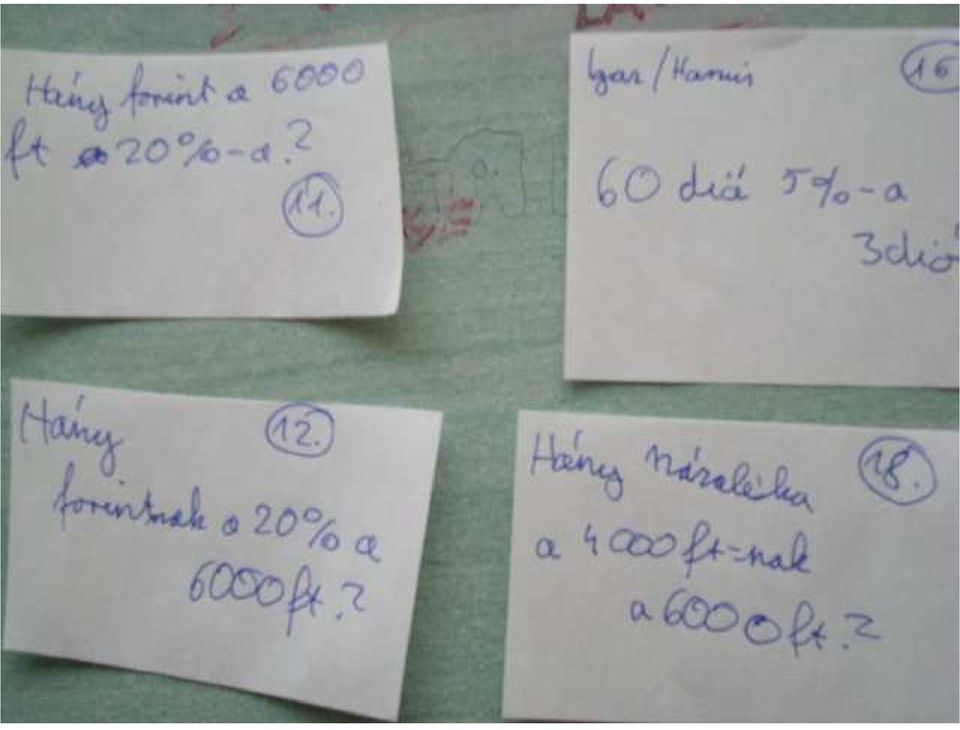 Hány forint a 6000
ft 20%-a.?
11.
Igaz/Hamis
16
60 dió 5%-a
3dió
Hány
12.
forintnak a 20% a
6000ft.?
Hány százaléka
18.
a 4000ft=nak
a 6000ft.?